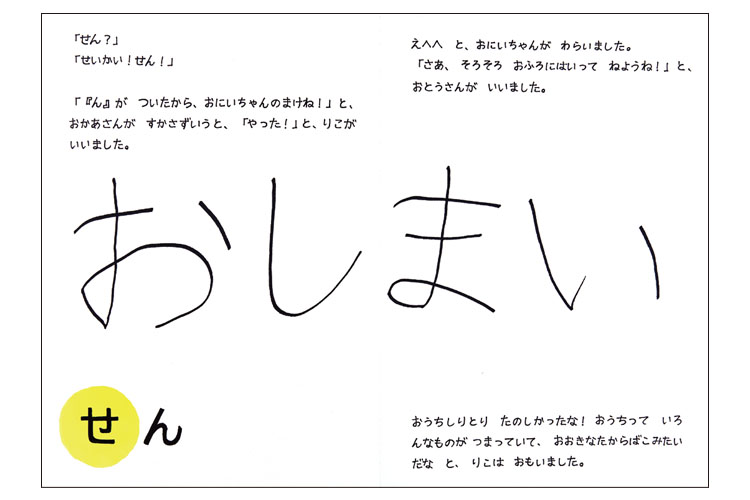 「せん？」
「せいかい！せん！」
「『ん』が ついたから、おにいちゃんのまけね！」と、
おかあさんが すかさずいうと、「やった！」と、りこが
いいました。
えへへ と、おにいちゃんが わらいました。
「さあ、そろそろ おふろにはいって ねようね！」と、
おとうさんが いいました。
おしまい
せん
おうちしりとり たのしかったな！ おうちって いろ
んなものが つまっていて、おおきなたからばこみたい
だな と、りこは おもいました。